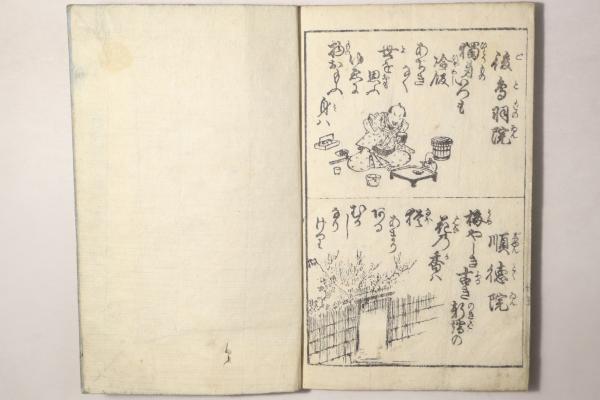 後鳥羽院
獨身いつも
冷飯
あぢき
なく
世を思ふ
ゆゑに
物おもふ
身ハ
順徳院
梅やしき古き軒端の
花の香ハ
猶
あまり
ある
むか
し
なり
けり